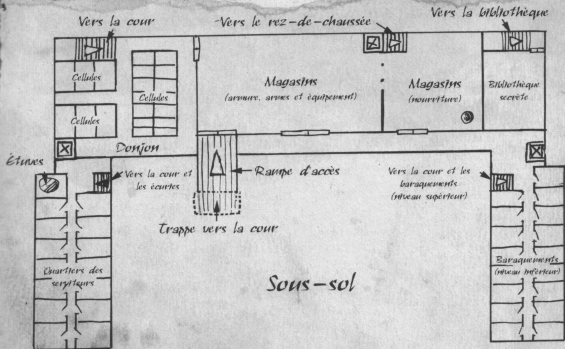 Vers la cour
Vers le rez-de-chaussée
Vers la bibliothèque
Cellules
Cellules
Cellules
Magasins
(armure, armes et équipement)
Magasins
(nourriture)
Bibliothèque
secrète
Donjon
Étuves
Vers la cour et
les écuries
Rampe d'accès
Vers la cour et les
baraquements
(niveau supérieur)
Trappe vers la cour
Quartiers des
serviteurs
Sous-sol
Baraquements
(niveau inférieur)